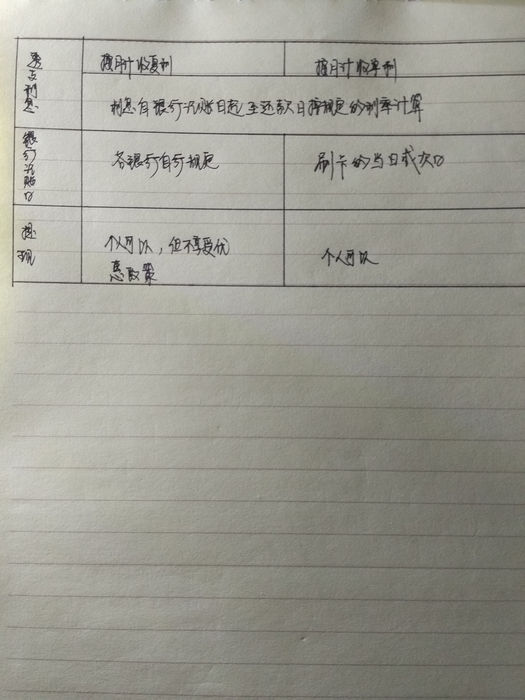 透支利息
按月计收复利
按月计收单利
利息自银行记账日起至还款日按规定的利率计算
银行记账日
各银行自行规定
刷卡的当日或次日
提现
个人可以，但不享受优
惠政策
个人可以